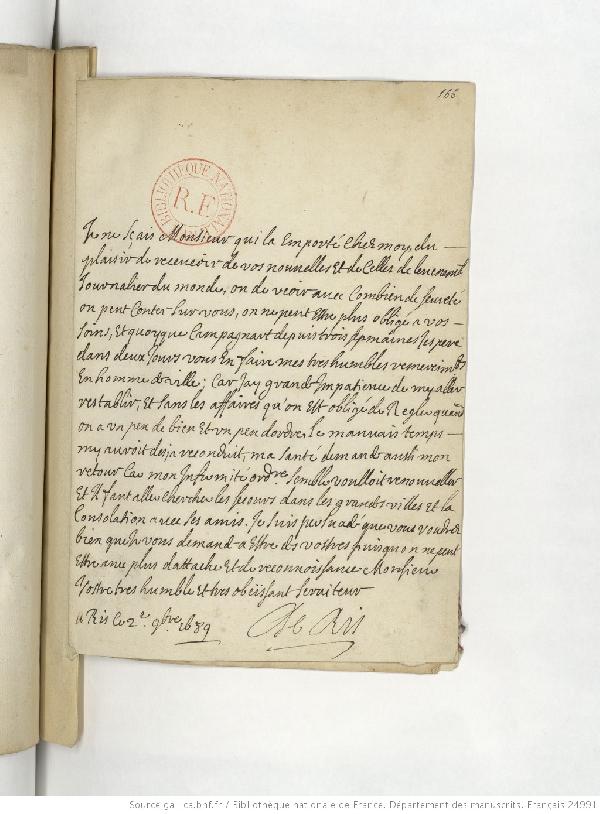 166
BIBLIOTHEQUE NATIONALE
R.F.
Je ne sçais Monsieur qui la Emporté Chez moy du
plaisir de recevoir de vos nouvelles Et de Celles de
Journalier du monde, ou de veoir avec Combien de seureté
on peut Conter sur vous, on ne peut Estre plus obligé a vos
soins, Et quoyque Campagnart depuis trois sepmaines Jespere
dans deux Jours vous En faire mes tres humbles remercim.ts
En homme de ville; Car Jay grande Impatience de my aller
restablir, Et sans les affaires qu'on Est obligé de Regler quand
on a un peu de bien Et un peu dordre le mauvais temps
my auroit desja reconduit, ma santé demande aussi mon
retour Car mon Infirmité ord.re semble vouloir renouveller
Et Il faut aller chercher les secours dans les grandes villes Et la
Consolation avec ses amis. Je suis persuadé que vous voudrez
bien que Je vous demande a Estre des vostres puisquon ne peut
Estre avec plus dattache Et de reconnoissance Monsieur
Vostre tres humble Et tres obeissant serviteur
a Ris le 2.e 9bre 1689
De Ris
Source gallica.bnf.fr / Bibliothèque nationale de France. Département des manuscrits. Français 24991